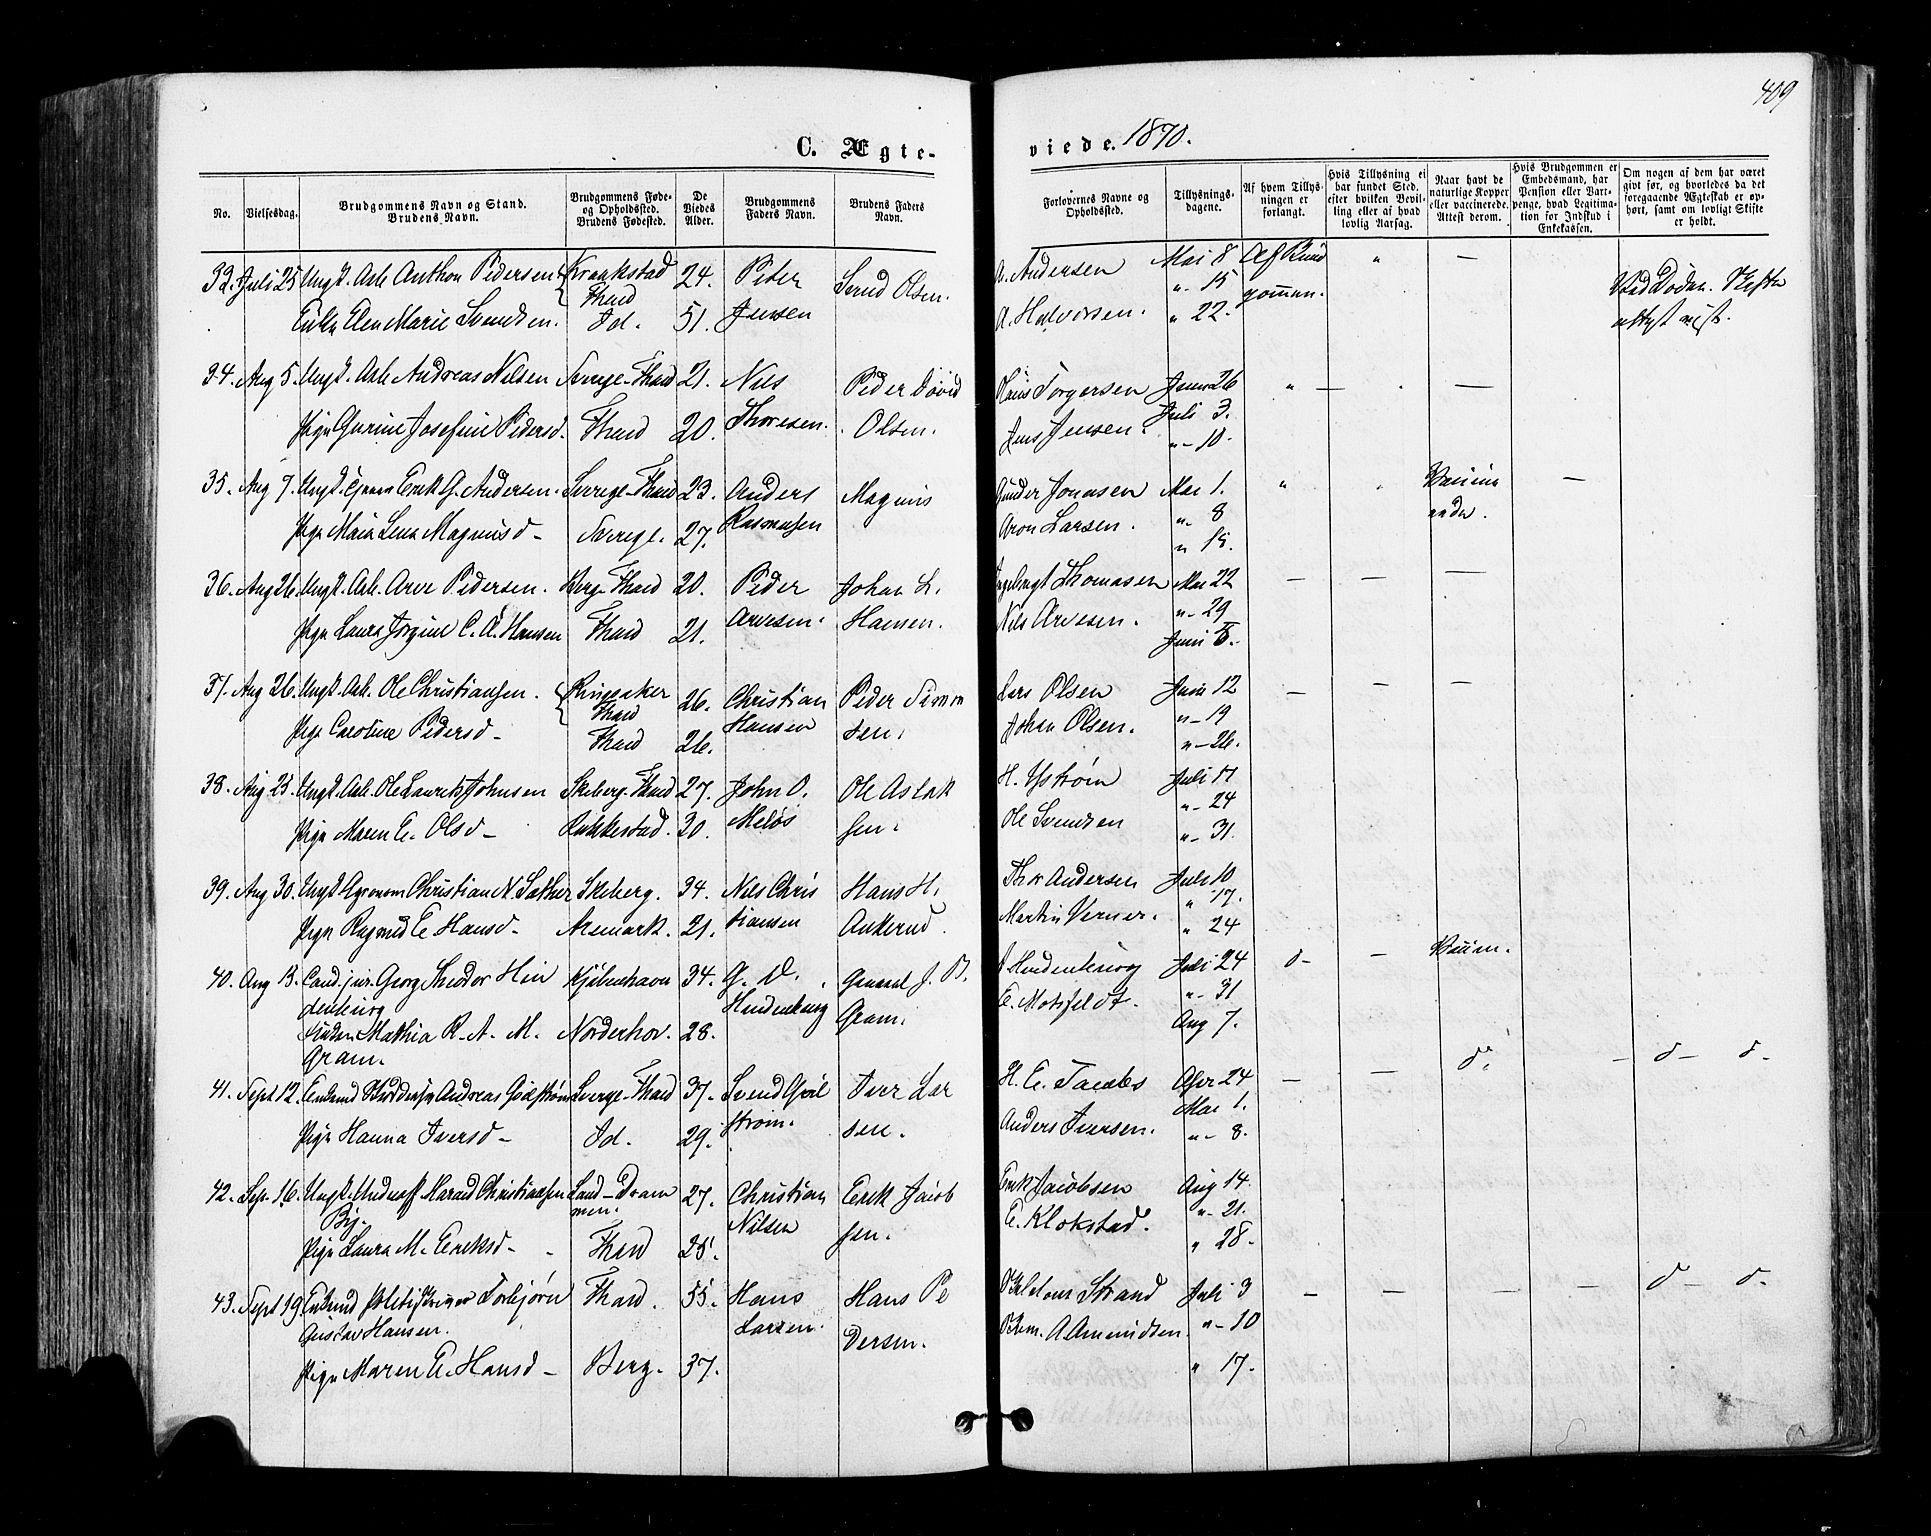 409
C. Ægte-
viede. 1870.
No.
Vielsesdag.
Brudgommens Navn og Stand.
Brudens Navn.
Brudgommens Føde-
og Opholdssted.
Brudens Fødested.
De
Viedes
Alder.
Brudgommens
Faders Navn.
Brudens Faders
Navn.
Forlovernes Navne og
Opholdssted.
Tillysnings-
dagene.
Af hvem Tillys-
ningen er
forlangt.
Hvis Tillysning ei
har fundet Sted,
efter hvilken Bevil-
ling eller af hvad
lovlig Aarsag.
Naar havt de
naturlige Kopper
eller vaccinerede.
Attest derom.
Hvis Brudgommen er
Embedsmand, har
Pension eller Vart-
penge, hvad Legitima-
tion for Indskud i
Enkekassen.
Om nogen af dem har været
givt før, og hvorledes da det
foregaaende Ægteskab er op-
hørt, samt om lovligt Skifte
er holdt.
32. Juli 25 Ungk. Arb. Anthon Pedersen 24. Peter Svend Olsen. A. Andersen Mai 8 Af Brud
Thard " 15 gommen.
Enke Elen Marie Svendsen. Id. 51. Jensen A. Halvorsen. " 22.
Ved Døden. Skifte
attest vist.
34. Aug 5. Ungk. Arb. Andreas Nilsen Sverge-Thard 21. Nils Peder David Hans Torgersen Juni 26
Pige Gurine Josefine Pedersd. Thard 20. Thoresen. Olsen. Jens Jensen. Juli 3.
"- 10.
35. Aug 7. Ungk. Erik G. Andersen. Sverge-Thard 23. Anders Magnus Gunder Jonasen Mai 1.
Pige Maia Lena Magnusd - Sverge. 27. Rasmusen Aron Larsen. "- 8
" 15.
36. Aug 26. Ungk. Arb. Arve Pedersen. Berg-Thard 20. Peder Johan L. Thomasen Mai 22
Pige Laura Jorgine C. A. Hansen Thard 21. Arvesen. Hansen. Nils Arvesen. "- 29
Juni 5.
37. Aug 26. Ungk. Arb. Ole Christiansen. Ringsaker 26. Christian Peder Simon Lars Olsen Juni 12
Thard
Pige Caroline Pedersd - Thard 26. Hansen sen. Johan Olsen. "- 19
"- 26.
38. Aug 25. Ungk. Arb. Ole Laurits Johnsen Skeberg-Thard 27. John O. Ole Aslak H. Ystrøm Juli 17
"- 24
Pige Maren E. Olsd - Rakkestad. 30. Meløs sen. Ole Svendsen "- 31.
39. Aug 30. Ungk. Agronom Christian N. Sæther Skeberg. 34. Nils Chris Hans H. Thor Andersen Juli 10
" 17.
Pige Ragnild E Hansd - Aremark. 21. tiansen Ankerud. Martin Verner. " 24
40. Aug 13. Cand. jur. Georg Theodor Hin Kjøbenhavn 34. G. D. General J. B. Hindenburg Juli 24
denburg Hindenburg Gram. E. Motzfeldt. "- 31
Frøken Mathia R. A. M. Norderhov. 28. Aug 7.
Gram.
41. Sept 12. Enkemd Andreas Gidstrøm Sverge-Thard 37. Svend Iver Lar H. E. Jacobs Apr 24
Mai 1.
Pige Hanna Iversd - Id. 29. strøm. sen. Anders Iversen. "- 8.
42. Sep. 16. Ungk. Christiansen Land-Dram 27. Christian Erik Jacob Erik Jacobsen Aug 14.
men. Nilsen E. Klokstad. "- 21.
Pige Laura M. Eriksd - Thard 25. sen. " 28.
43. Sept 19 Enkemd Torbjørn Thard. 55. Hans Hans Pe Strand Juli 3
Gustav Hansen. Larsen. dersen. A Amundsen. "- 10
Pige Maren E. Hansd - Berg. 37. " 17.